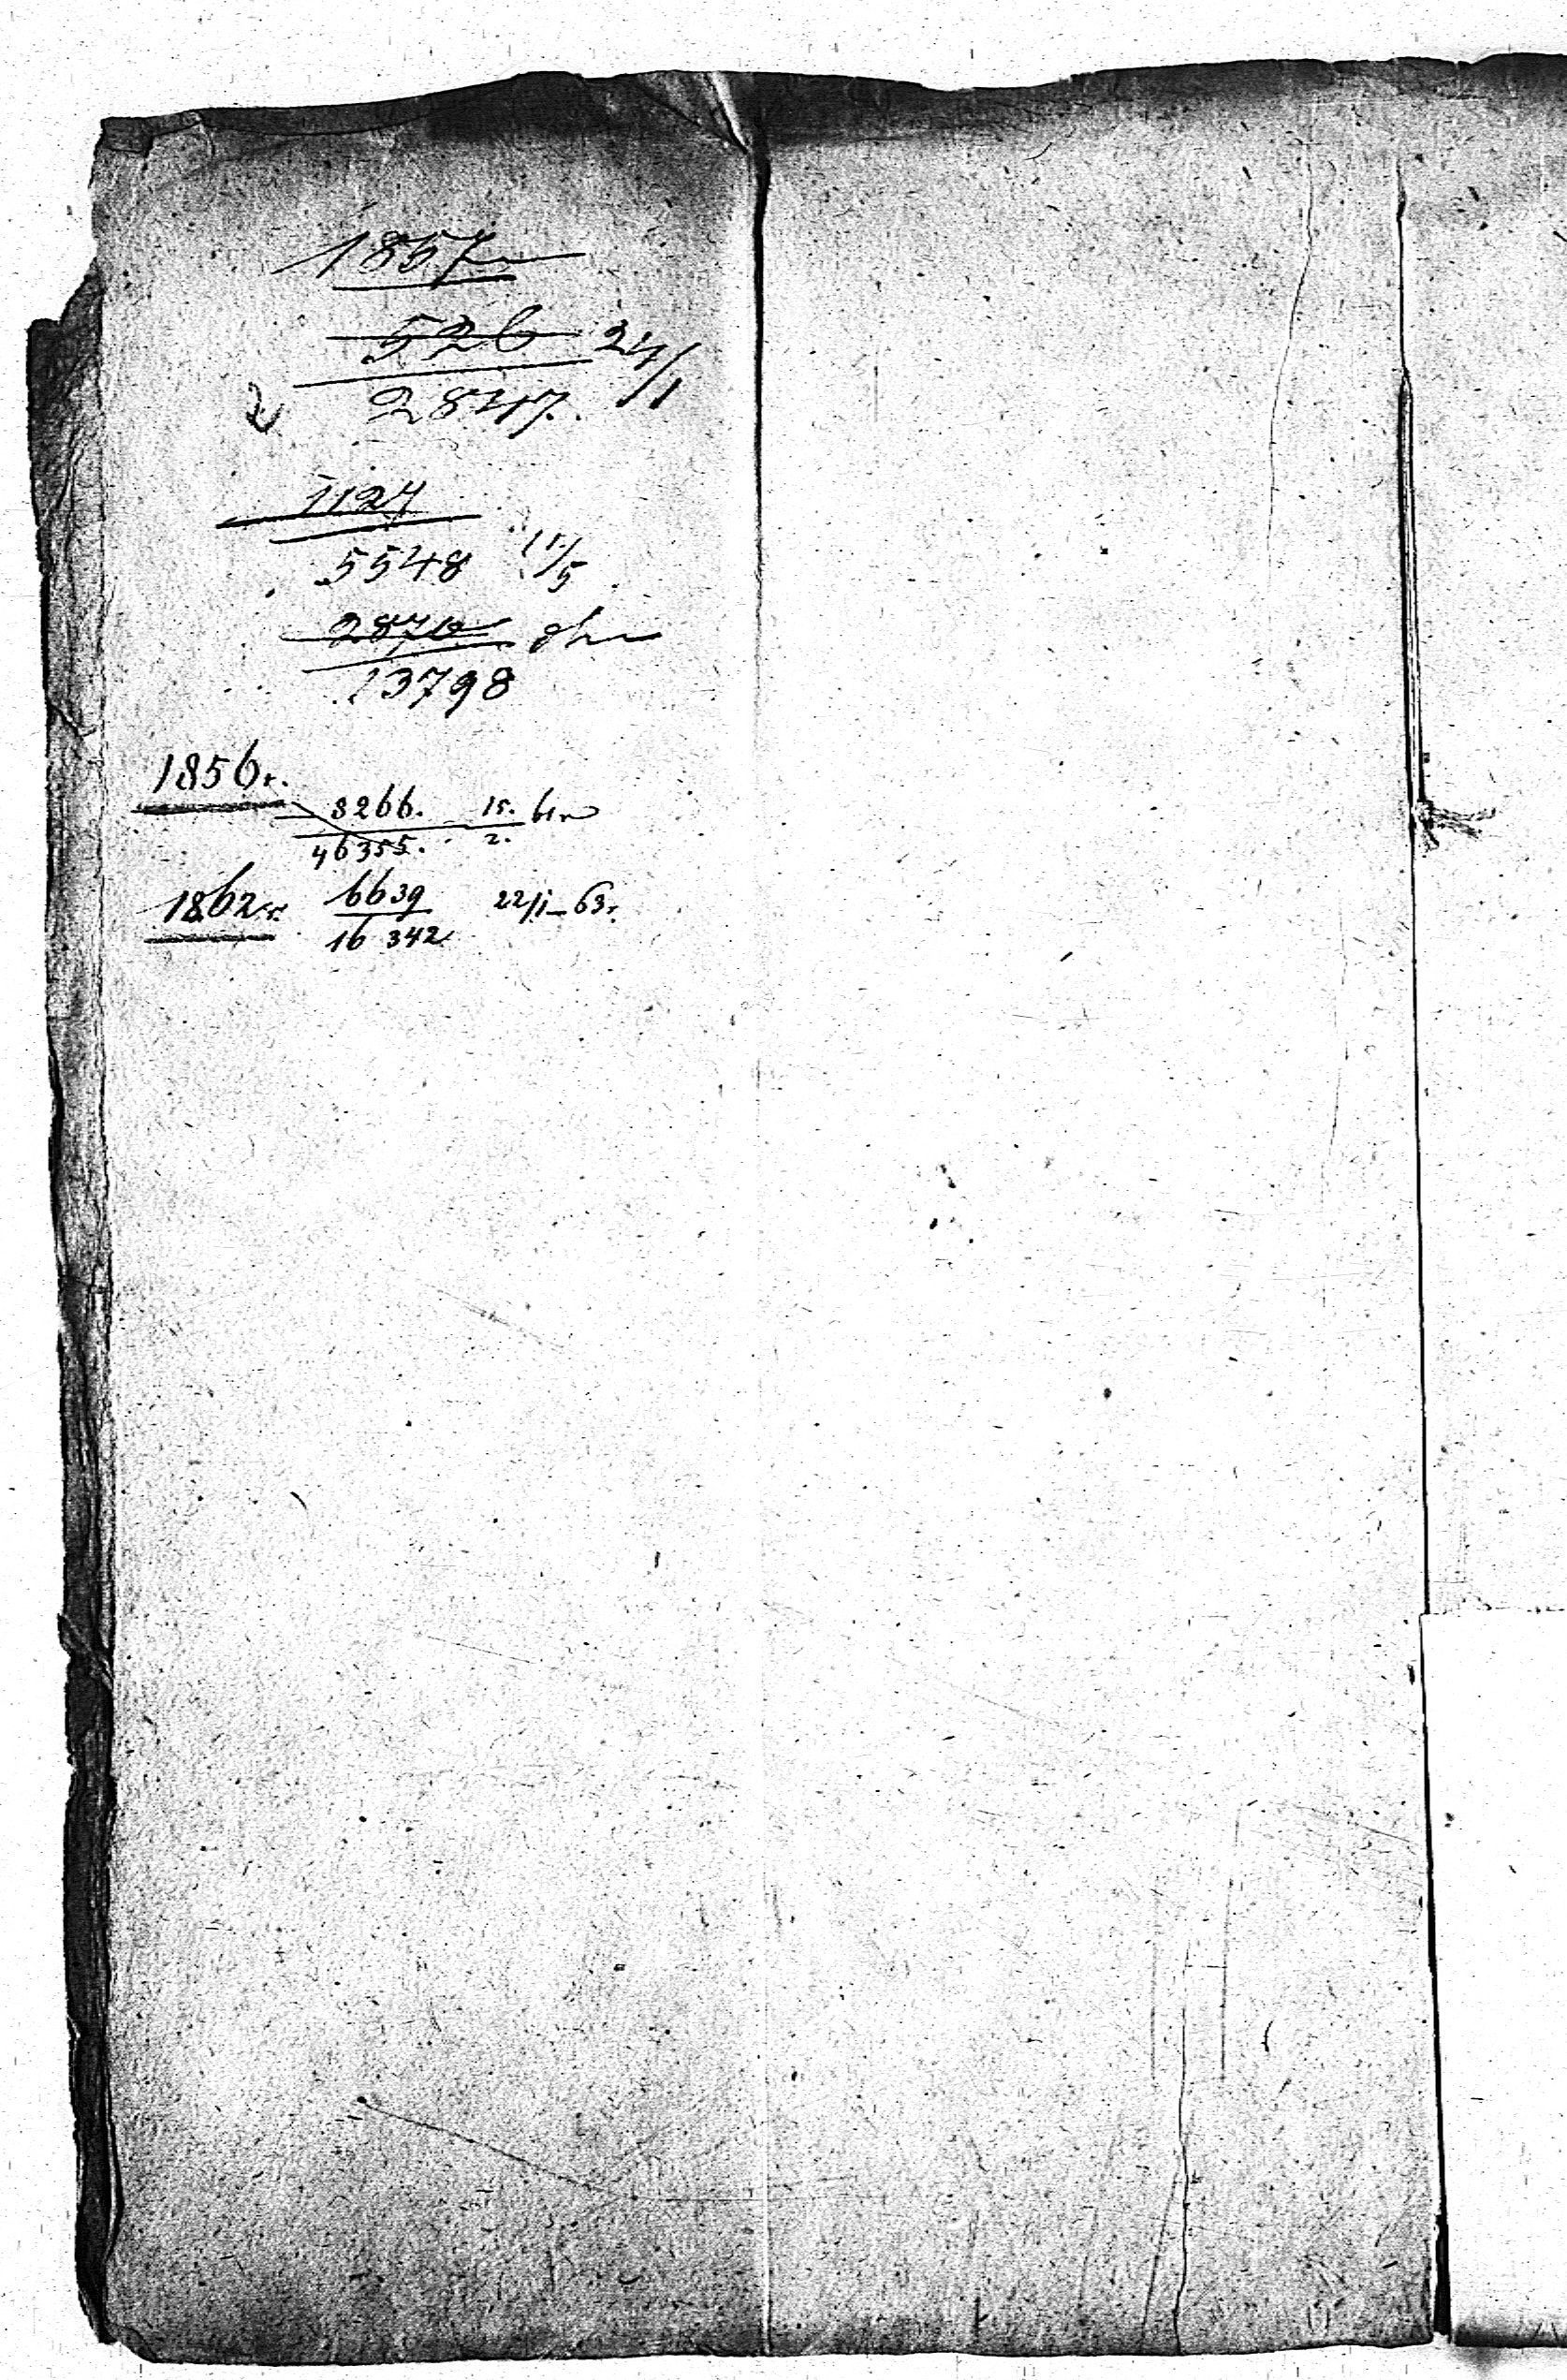 1857
526 24/1
2847.
1124
5548 11/5
2876
13798
1856г.
8266. 15. 61г
46355. 2.
1862г. 6639 22/1 – 63г.
16 342